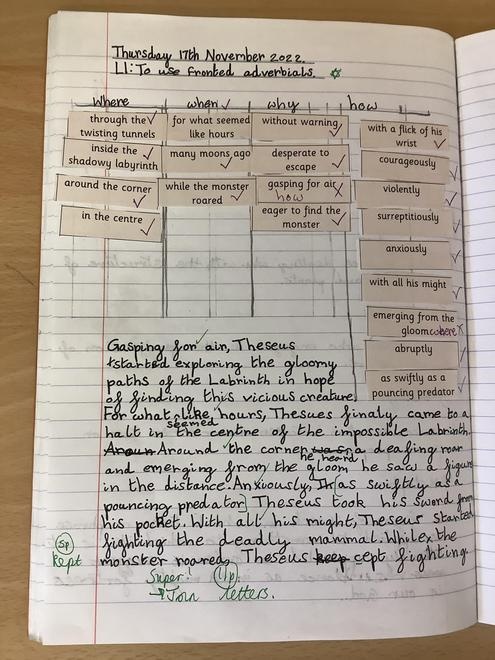 Thursday 17th November 2022.
LI: To use fronted adverbials.
Where when ✓ why how
through the ✓
twisting tunnels
inside the ✓
shadowy labyrinth
around the corner ✓
in the centre ✓
for what seemed
like hours
many moons ago ✓
while the monster
roared ✓
without warning ✓
desperate to
escape ✓
gasping for air x
how
eager to find the
monster ✓
with a flick of his
wrist ✓
courageously ✓
violently ✓
surreptitiously ✓
anxiously ✓
with all his might ✓
emerging from the
gloom where x
abruptly ✓
as swiftly as a
pouncing predator ✓
Gasping for air, Theseus
started exploring the gloomy
paths of the Labrinth in hope
of finding this vicious creature.
For what like hours, Thesues finaly came to a
seemed
halt in the centre of the impossible Labrinth.
Aroun Around the corner was a deafing roar
he heard
and emerging from the gloom he saw a figure
in the distance. Anxiously, as swiftly as a
pouncing predator Theseus took his sword from
his pocket. With all his might, Theseus started
fighting the deadly mammal. While the
monster roared, Theseus keep cept fighting.
Sp
kept
Super! 1p
→ Join letters.